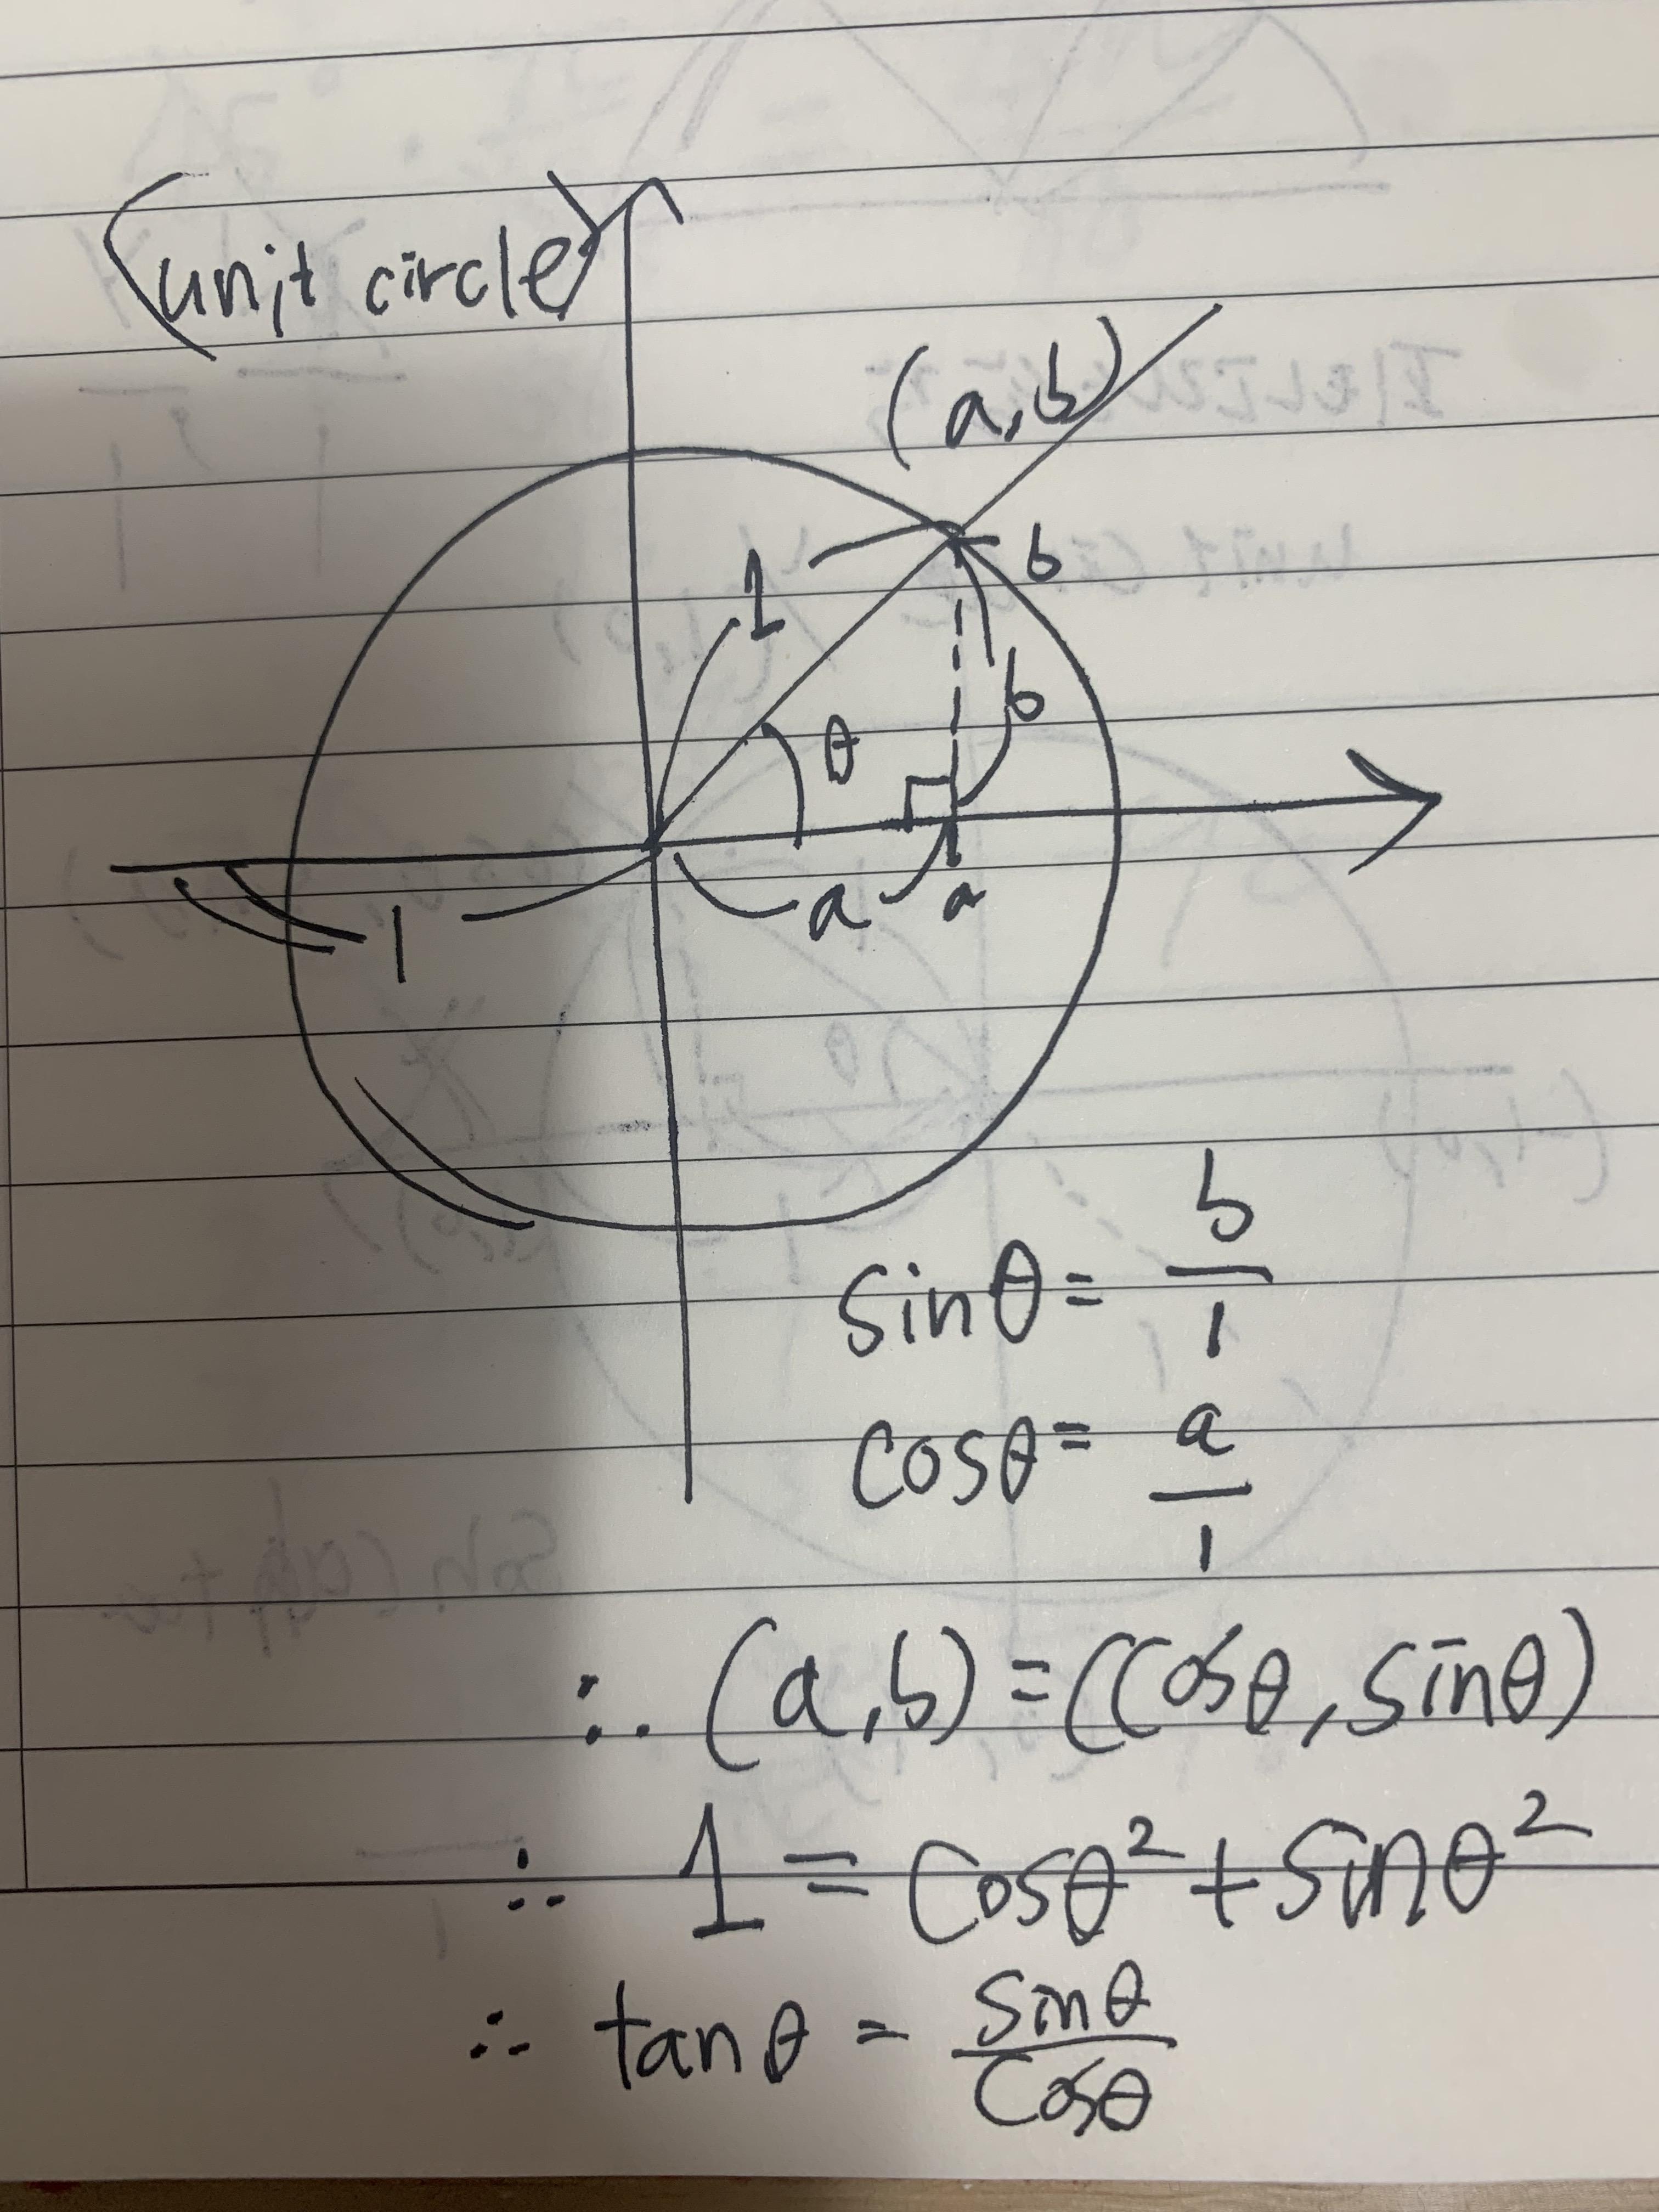 (unit circle)
(a,b)
1
b
b
θ
1
a
a
sinθ = b/1
cosθ = a/1
∴ (a,b) = (cosθ, sinθ)
∴ 1 = cosθ² + sinθ²
∴ tanθ = sinθ/cosθ